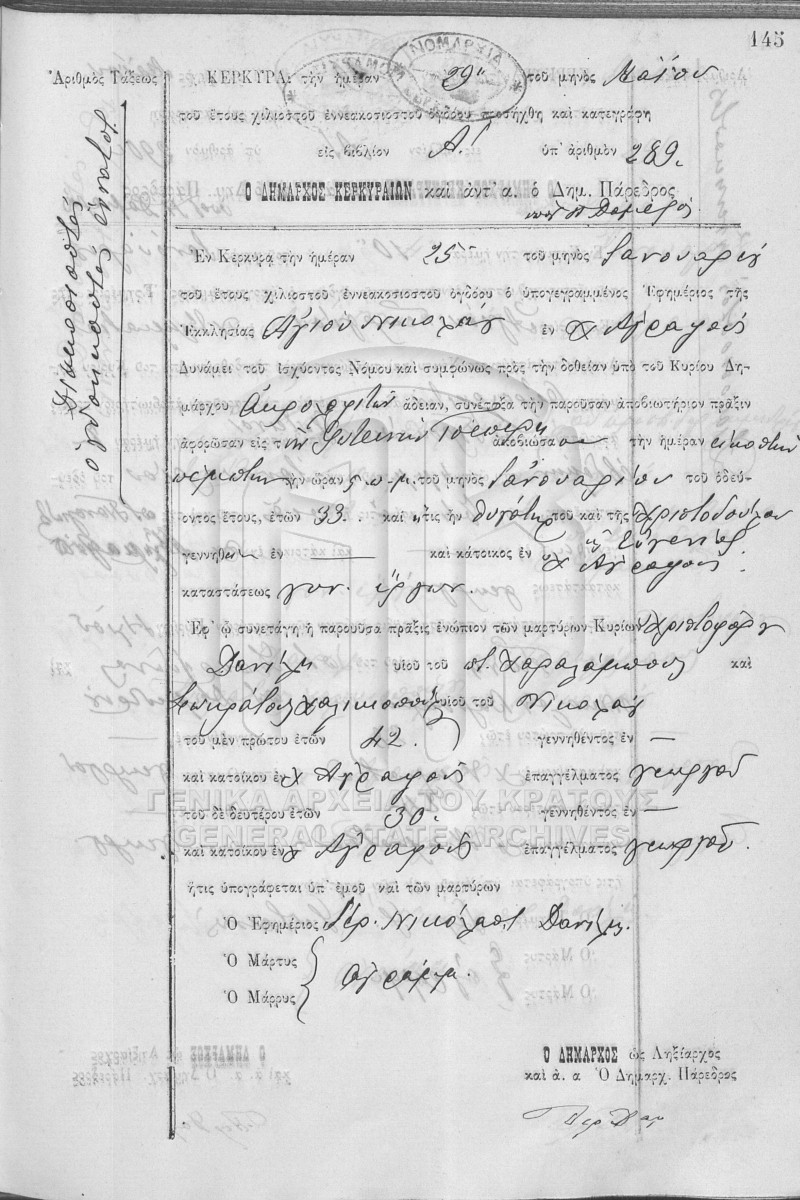 145
Ἀριθμὸς Τάξεως
Διακοσιοστὸς
ὀγδοηκοστὸς ἔννατος
ΝΟΜΑΡΧΙΑ
ΚΕΡΚΥΡΑ: τὴν ἡμέραν 29ην τοῦ μηνὸς Μαΐου
τοῦ ἔτους χιλιοστοῦ ἐννεακοσιοστοῦ ὀγδόου προσήχθη καὶ κατεγράφη
εἰς βιβλίον Α! ὑπ' ἀριθμὸν 289.
Ο ΔΗΜΑΡΧΟΣ ΚΕΡΚΥΡΑΙΩΝ καὶ ἀντ' α. ὁ Δημ. Πάρεδρος
Ἐν Κέρκυρᾳ τὴν ἡμέραν 25 τοῦ μηνὸς Ἰανουαρίου
τοῦ ἔτους χιλιοστοῦ ἐννεακοσιοστοῦ ὀγδόου ὁ ὑπογεγραμμένος Ἐφημέριος τῆς
Ἐκκλησίας Ἁγίου Νικολάου ἐν χ Ἀγραφοῖς
Δυνάμει τοῦ ἰσχύοντος Νόμου καὶ συμφώνως πρὸς τὴν δοθεῖαν ὑπὸ τοῦ Κυρίου Δη-
μάρχου ἄδειαν, συνέταξα τὴν παροῦσαν ἀποβιωτήριον πρᾶξιν
ἀφορῶσαν εἰς τὴν Φωτεινὴν ἀποβιώσασαν τὴν ἡμέραν εἰκοστὴν
πέμπτην τὴν ὥραν 5 π.μ. τοῦ μηνὸς Ἰανουαρίου τοῦ ὁδεύ-
οντος ἔτους, ἐτῶν 33. καὶ ἥτις ἦν θυγάτηρ τοῦ καὶ τῆς Χριστοδούλου
κ Εὐγενίας
γεννηθεῖσα ἐν — καὶ κάτοικος ἐν χ Ἀγραφοῖς.
καταστάσεως γυν. ἔργων.
Ἐφ' ᾧ συνετάγη ἡ παροῦσα πρᾶξις ἐνώπιον τῶν μαρτύρων Κυρίων Χριστοφόρου
Δανίλη υἱοῦ τοῦ π. Χαραλάμπους καὶ
Σωκράτους Χαλικιοπούλου υἱοῦ τοῦ Νικολάου
τοῦ μὲν πρώτου ἐτῶν 42. γεννηθέντος ἐν —
καὶ κατοίκου ἐν χ Ἀγραφοῖς ἐπαγγέλματος γεωργοῦ
ΓΕΝΙΚΑ ΑΡΧΕΙΑ ΤΟΥ ΚΡΑΤΟΥΣ
τοῦ δὲ δευτέρου ἐτῶν 30. γεννηθέντος ἐν —
GENERAL STATE ARCHIVES
καὶ κατοίκου ἐν χ Ἀγραφοῖς ἐπαγγέλματος γεωργοῦ.
ἥτις ὑπογράφεται ὑπ' ἐμοῦ καὶ τῶν μαρτύρων
Ὁ Ἐφημέριος Ἱερ. Νικόλαος Δανίλης.
Ὁ Μάρτυς
Ὁ Μάρρυς
Ἀγράμμ.
Ο ΔΗΜΑΡΧΟΣ ὡς Ληξίαρχος
καὶ ἀ. α Ὁ Δημαρχ. Πάρεδρος